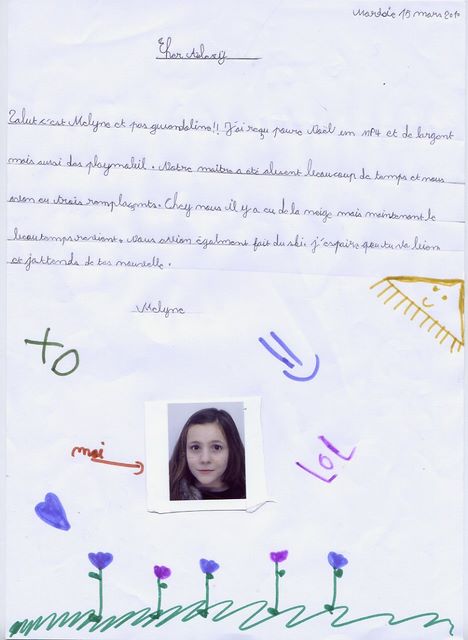 Mardie 15 mars 201
Cher
Salut c'est Melyne et pas gwendoline!! J'ai reçu pour Noël un MP4 et de l'argent
mais aussi des playmobil. Notre maître a été absent beaucoup de temps et nous
avion eu trois remplaçents. Chez nous il y a eu de la neige mais maintenant le
beau temps revient. Nous avion également fait du ski. j'espaire que tu va bien
et j'attends de tes nouvelle.
Melyne
XO
moi
LOL